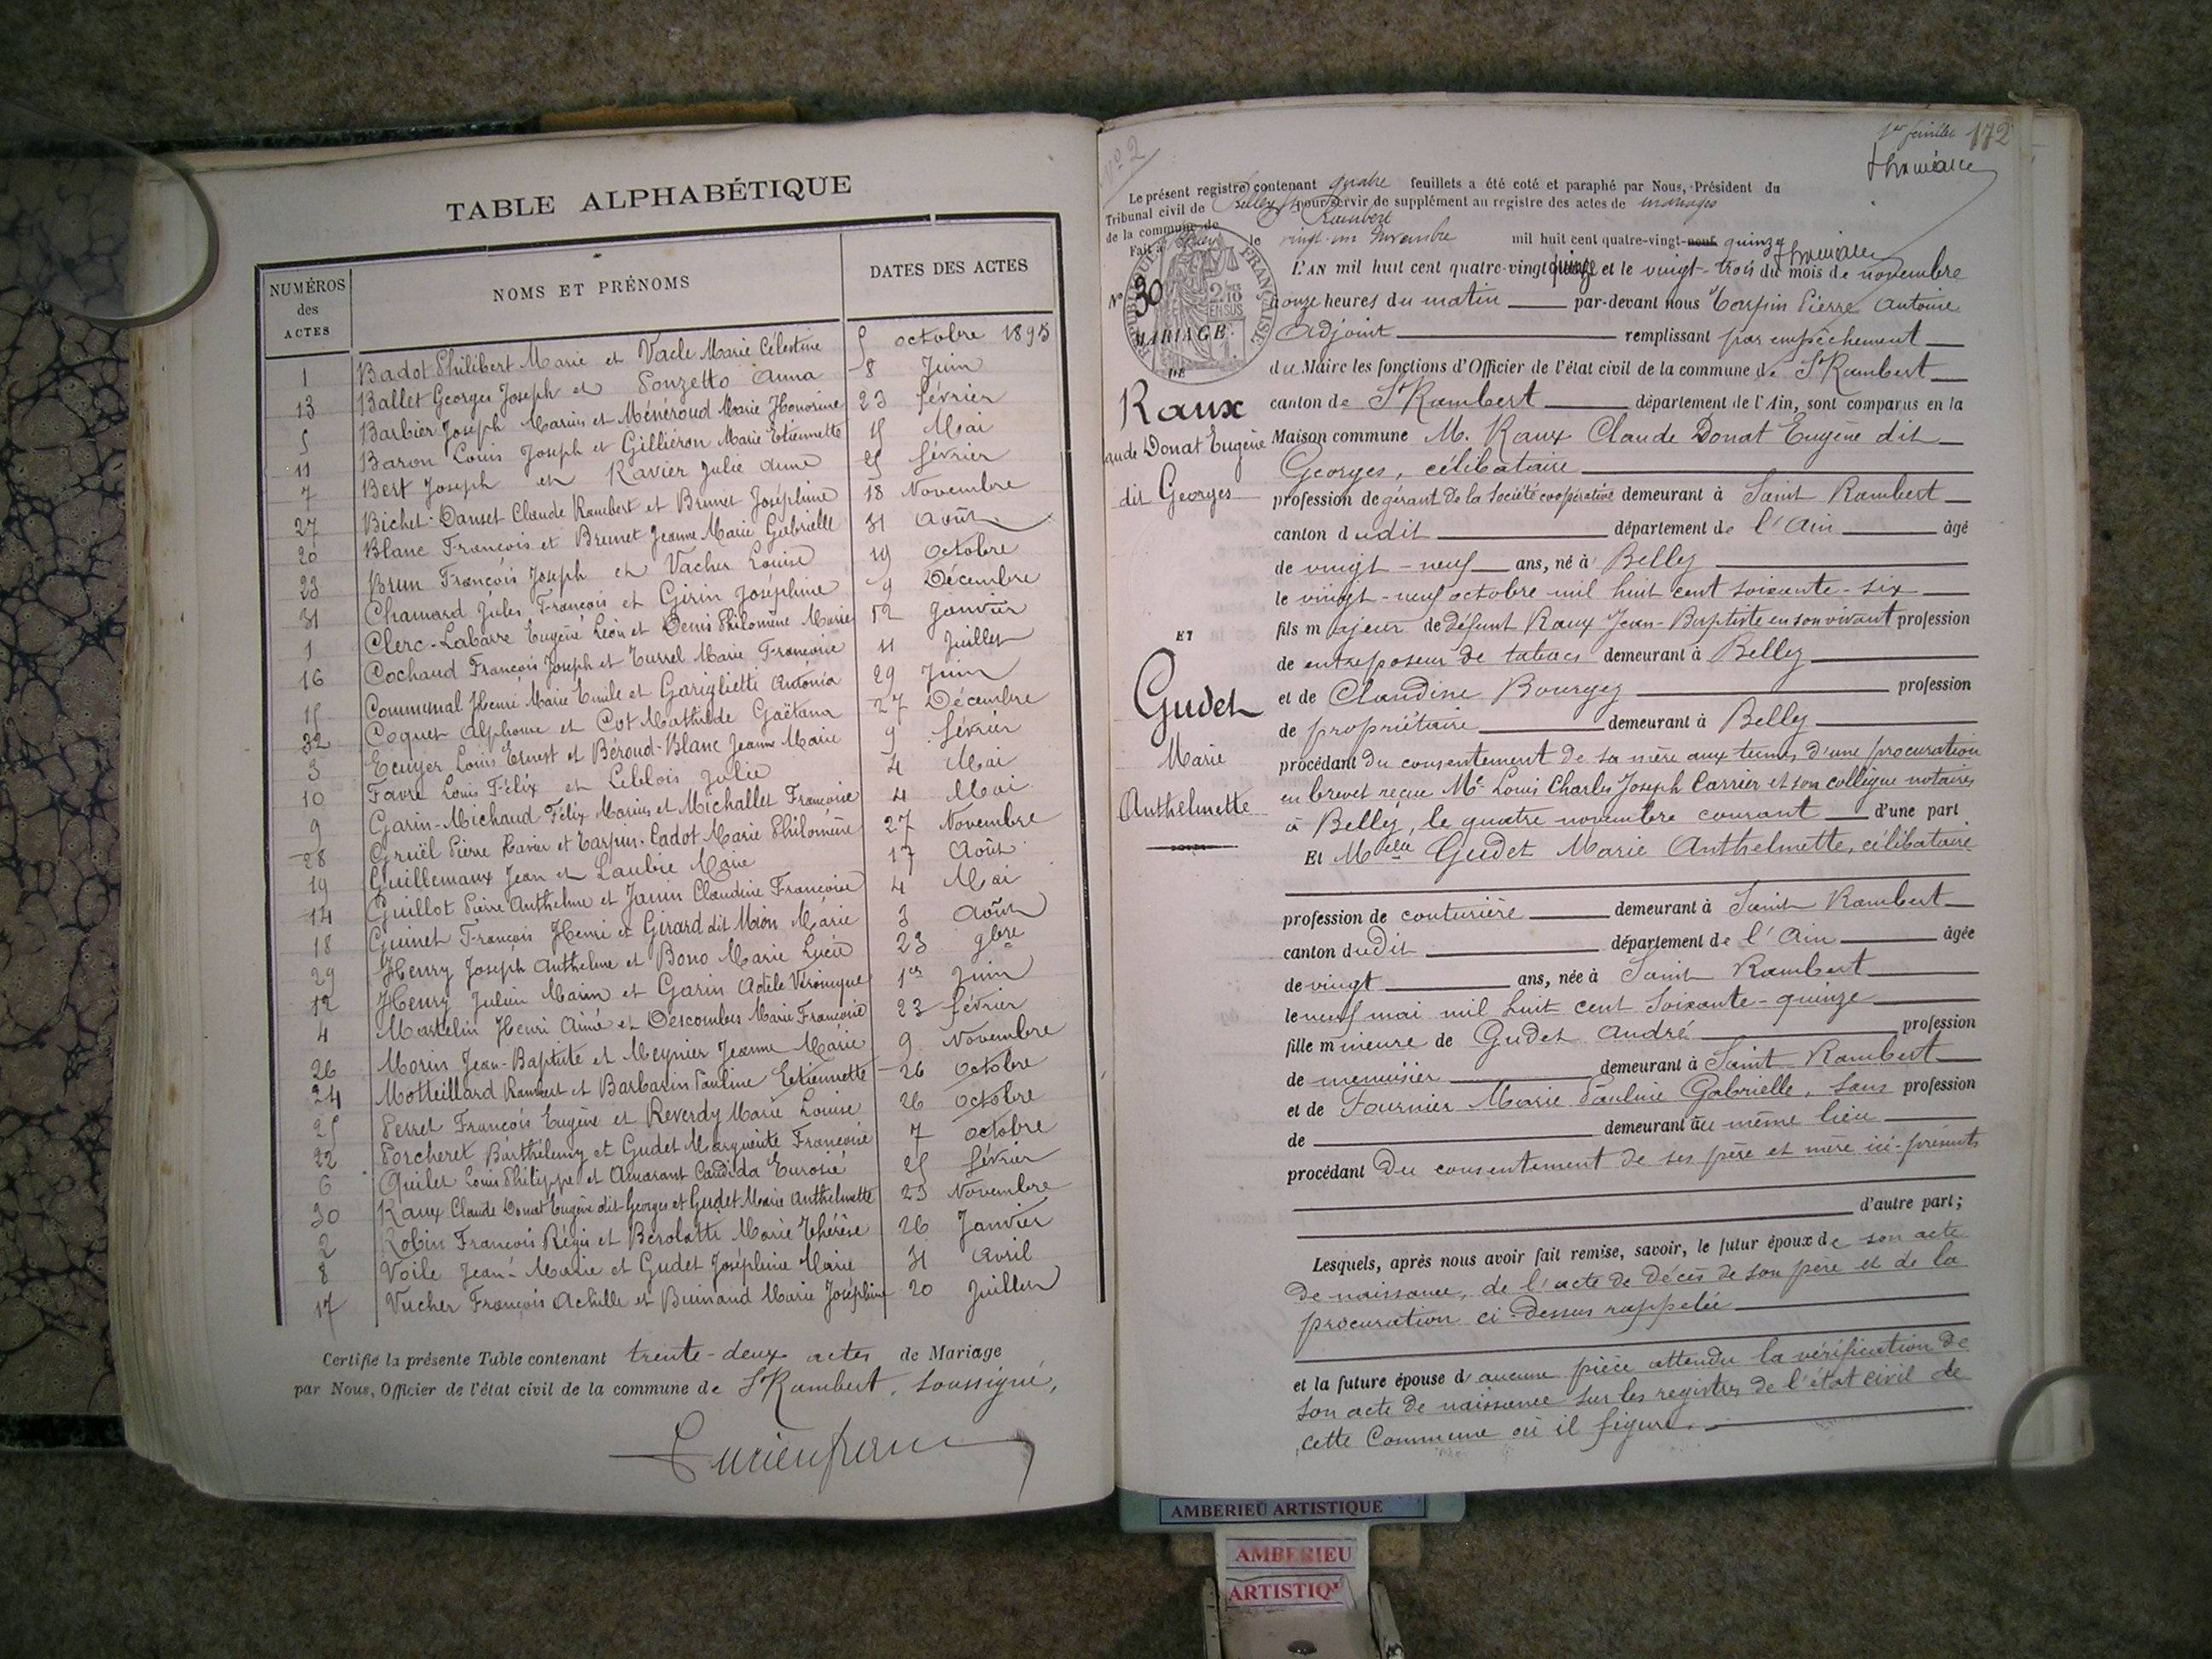 TABLE ALPHABÉTIQUE
NUMÉROS des ACTES
NOMS ET PRÉNOMS
DATES DES ACTES
1 Badot Philibert Marie et Vacle Marie Célestine 5 octobre 1895
13 Ballet Georges Joseph et Ponzetto Anna 8 Juin
5 Barbier Joseph Marius et Ménéroud Marie Honorine 23 février
11 Baron Louis Joseph et Gilliéron Marie Etiennette 15 Mai
7 Bert Joseph et Ravier Julie Anne 25 février
27 Bichet-Danset Claude Rambert et Brunet Joséphine 18 Novembre
20 Blanc François et Brunet Jeanne Marie Gabrielle 31 Août
23 Brun François Joseph et Vacher Louise 19 octobre
31 Chamard Jules François et Girin Joséphine 9 Décembre
1 Clerc-Labarre Eugène Léon et Denis Philomène Marie 12 Janvier
16 Cochaud François Joseph et Turrel Marie Françoise 11 Juillet
15 Communal Henri Marie Emile et Garigliette Antonia 29 Juin
32 Coquet Alphonse et Cot Mathilde Gaëtana 27 Décembre
3 Ecuyer Louis Ernest et Béroud-Blanc Jeanne Marie 9 février
10 Favre Louis Félix et Leblois Julie 4 Mai
9 Garin-Michaud Félix Marius et Michallet Françoise 4 Mai
28 Gruël Pierre Xavier et Tarpin-Cadot Marie Philomène 27 Novembre
19 Guillemaux Jean et Laubie Marie 17 Août
14 Guillot Pierre Anthelme et Janin Claudine Françoise 4 Mai
18 Guinet François Henri et Girard dit Mion Marie 3 Août
29 Henry Joseph Anthelme et Bono Marie Lucie 23 9bre
12 Henry Julien Marin et Garin Adèle Véronique 1er Juin
4 Martelin Henri Aimé et Descombes Marie Françoise 23 février
26 Morin Jean-Baptiste et Meynier Jeanne Marie 9 Novembre
24 Motteillard Rambert et Barbarin Pauline Etiennette 26 octobre
25 Perret François Eugène et Reverdy Marie Louise 26 octobre
22 Porcheret Barthélemy et Gudet Marguerite Françoise 7 octobre
6 Quilet Louis Philippe et Amarant Candida Eurosie 25 février
30 Raux Claude Donat Eugène dit Georges et Gudet Marie Anthelmette 23 Novembre
2 Robin François Régis et Bérolatti Marie Thérèse 26 Janvier
8 Voile Jean-Marie et Gudet Joséphine Marie 31 Avril
17 Vucher François Achille et Buinand Marie Joséphine 20 Juillet
Certifié la présente Table contenant trente-deux actes de Mariage
par Nous, Officier de l'état civil de la commune de St Rambert, soussigné,
No 2
1er feuillet 172
Le présent registre contenant quatre feuillets a été coté et paraphé par Nous, Président du
Tribunal civil de Belley pour servir de supplément au registre des actes de mariages
de la commune de St Rambert
Fait à Belley le vingt-un novembre mil huit cent quatre-vingt-neuf quinze
L'AN mil huit cent quatre-vingt quinze et le vingt-trois du mois de novembre
No 30
à onze heures du matin par-devant nous Tarpin Pierre Antoine
MARIAGE
Adjoint remplissant par empêchement
DE
du Maire les fonctions d'Officier de l'état civil de la commune de St Rambert
Raux
canton de St Rambert département de l'Ain, sont comparus en la
aude Donat Eugène
Maison commune M. Raux Claude Donat Eugène dit
Georges, célibataire
dit Georges
profession de gérant de la Société coopérative demeurant à Saint Rambert
canton dudit département de l'Ain âgé
de vingt-neuf ans, né à Belley
le vingt-neuf octobre mil huit cent soixante-six
ET
fils majeur de défunt Raux Jean-Baptiste en son vivant profession
de entreposeur de tabacs demeurant à Belley
Gudet
et de Claudine Bourgey profession
de propriétaire demeurant à Belley
Marie
procédant du consentement de sa mère aux termes d'une procuration
en brevet reçue Me Louis Charles Joseph Carrier et son collègue notaires
Anthelmette
à Belley, le quatre novembre courant d'une part
Et Melle Gudet Marie Anthelmette, célibataire
profession de couturière demeurant à Saint Rambert
canton dudit département de l'Ain âgée
de vingt ans, née à Saint Rambert
le neuf mai mil huit cent soixante-quinze
fille mineure de Gudet André profession
de menuisier demeurant à Saint Rambert
et de Fournier Marie Pauline Gabrielle, sans profession
de demeurant au même lieu
procédant du consentement de ses père et mère ici-présents
d'autre part;
Lesquels, après nous avoir fait remise, savoir, le futur époux de son acte
de naissance, de l'acte de décès de son père et de la
procuration ci-dessus rappelée
et la future épouse d'aucune pièce attendu la vérification de
son acte de naissance sur les registres de l'état civil de
cette Commune où il figure.
AMBERIEU ARTISTIQUE
AMBERIEU
ARTISTIQ